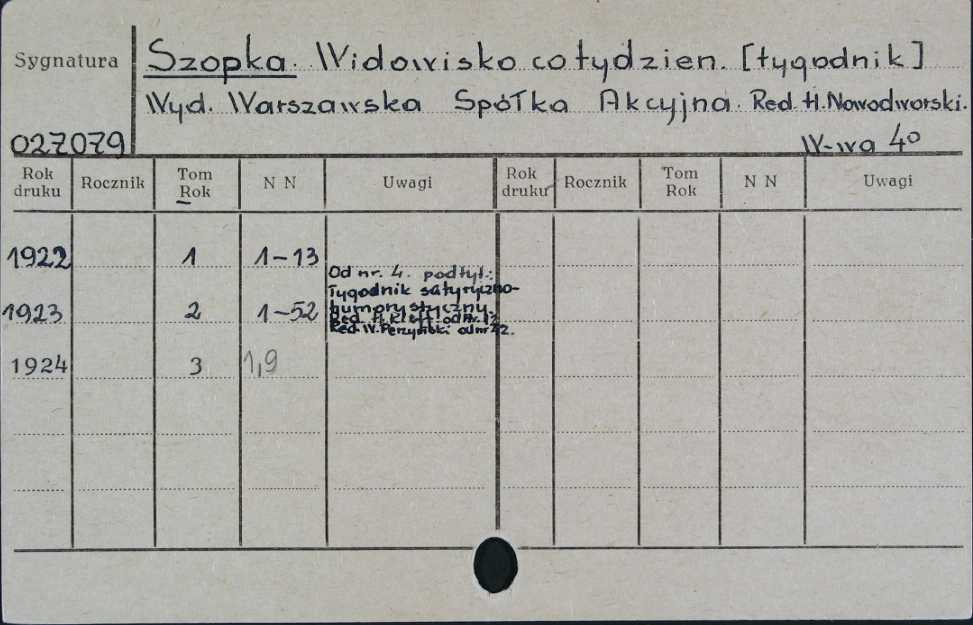 Sygnatura Szopka. Widowisko cotydzien. [tygodnik]
Wyd. Warszawska Spółka Akcyjna. Red. H. Nowodworski.
027079 W-wa 4°
Rok druku Rocznik Tom Rok N N Uwagi Rok druku Rocznik Tom Rok N N Uwagi
1922 1 1–13
Od nr. 4. podtyt.:
Tygodnik satyryczno-
1923 2 1–52 humorystyczny.
Red. H. od nr. 12
Red. W. Perzyński od nr 22.
1924 3 1,9